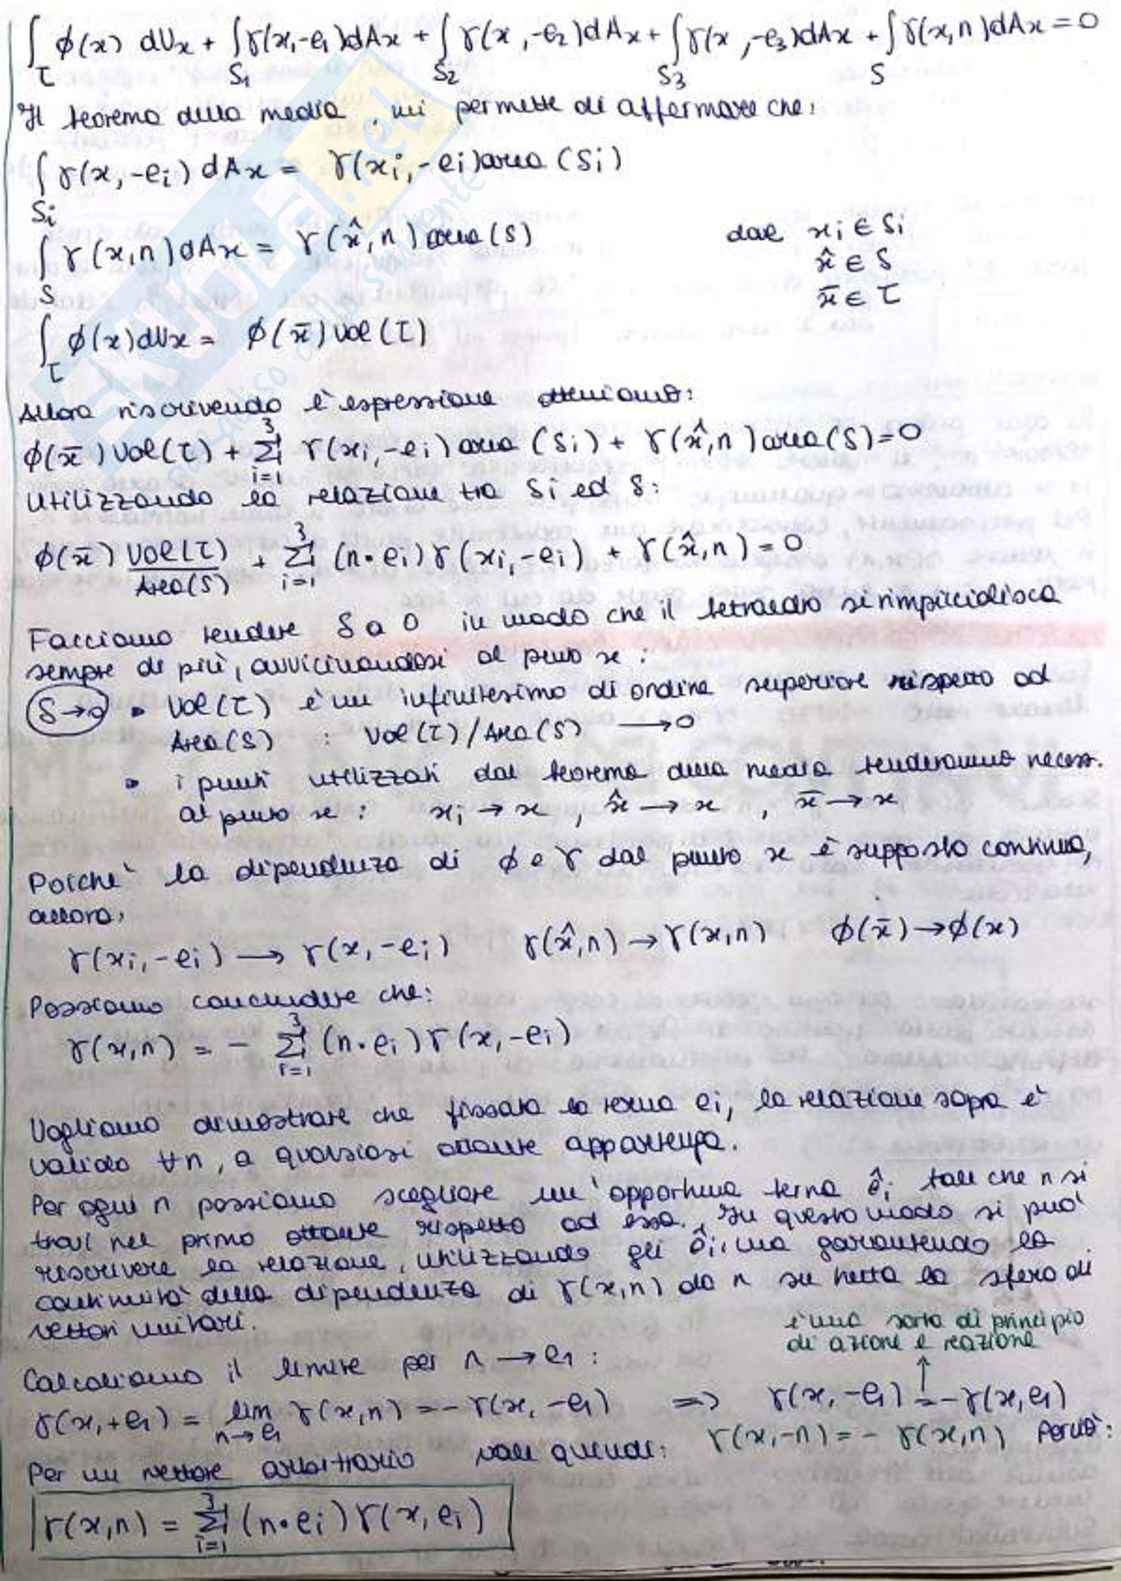 ∫_τ ϕ(x) dVx + ∫_S1 γ(x,-e1)dAx + ∫_S2 γ(x,-e2)dAx + ∫_S3 γ(x,-e3)dAx + ∫_S γ(x,n)dAx = 0
Il teorema della media, mi permette di affermare che:
∫_Si γ(x,-ei) dAx = γ(xi,-ei)area(Si)
∫_S γ(x,n)dAx = γ(x̂,n) area(S) dove xi ∈ Si
x̂ ∈ S
x̄ ∈ τ
∫_τ ϕ(x)dVx = ϕ(x̄)vol(τ)
Allora riscrivendo l'espressione otteniamo:
ϕ(x̄)vol(τ) + Σ_{i=1}^{3} γ(xi,-ei)area(Si) + γ(x̂,n)area(S)=0
Utilizzando la relazione tra Si ed S:
ϕ(x̄) Vol(τ)/Area(S) + Σ_{i=1}^{3} (n·ei)γ(xi,-ei) + γ(x̂,n)=0
Facciamo tendere δ a 0 in modo che il tetraedro si rimpicciolisca
sempre di più, avvicinandosi al punto x:
δ→0 • Vol(τ) è un infinitesimo di ordine superiore rispetto ad
Area(S) : Vol(τ)/Area(S) → 0
• i punti utilizzati dal teorema della media tenderanno necess.
al punto x: xi → x, x̂ → x, x̄ → x
Poiché la dipendenza di ϕ e γ dal punto x è supposta continua,
allora,
γ(xi,-ei) → γ(x,-ei) γ(x̂,n)→γ(x,n) ϕ(x̄)→ϕ(x)
Possiamo concludere che:
γ(x,n) = - Σ_{i=1}^{3} (n·ei)γ(x,-ei)
Vogliamo dimostrare che fissata la terna ei, la relazione sopra è
valida ∀n, a qualsiasi ottante appartenga.
Per ogni n possiamo scegliere un'opportuna terna êi tale che n si
trovi nel primo ottante rispetto ad essa. In questo modo si può
riscrivere la relazione, utilizzando gli êi, ma garantendo la
continuità della dipendenza di γ(x,n) da n su tutta la sfera di
vettori unitari.
è una sorta di principio
di azione e reazione
Calcoliamo il limite per n → e1:
γ(x,+e1) = lim_{n→e1} γ(x,n) = -γ(x,-e1) => γ(x,-e1) = -γ(x,e1)
Per un vettore arbitrario vale quindi: γ(x,-n) = - γ(x,n) Perciò:
γ(x,n) = Σ_{i=1}^{3} (n·ei)γ(x,ei)